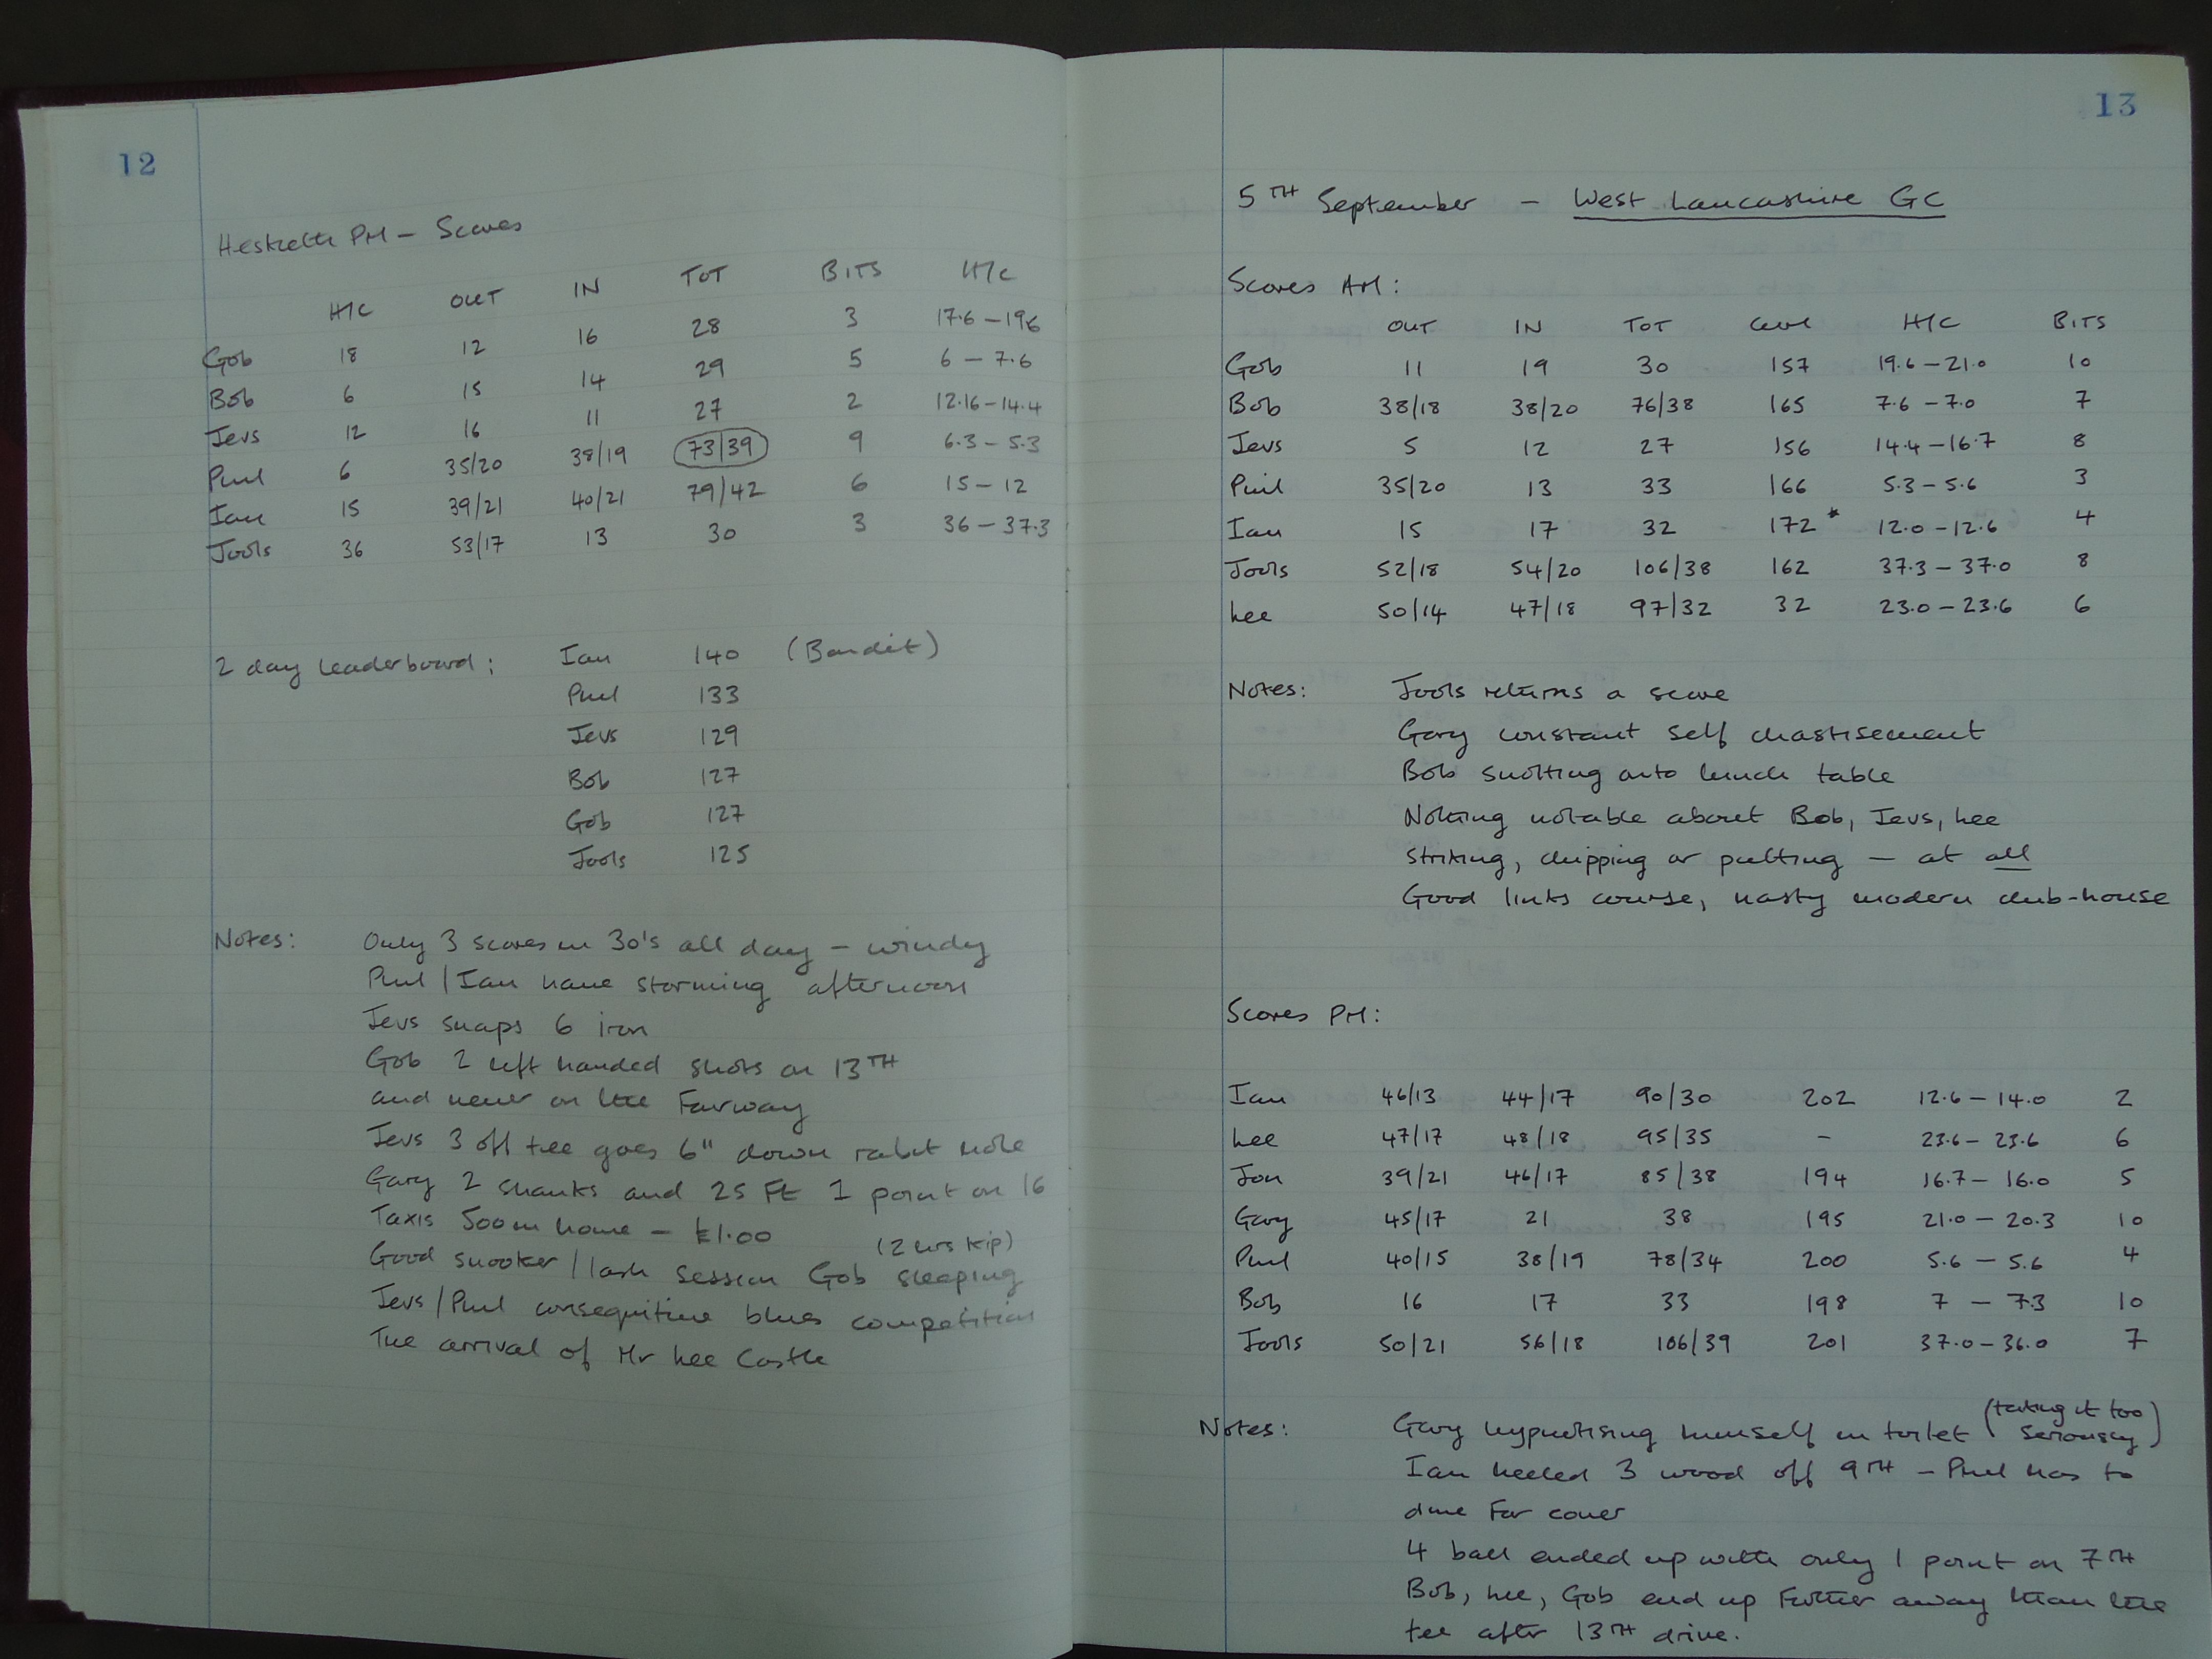 12
Hesketh PM - Scores
H/C OUT IN TOT BITS H/C
Gob 18 12 16 28 3 17.6 - 19.6
Bob 6 15 14 29 5 6 - 7.6
Jevs 12 16 11 27 2 12.16 - 14.4
Phil 6 35/20 38/19 73/39 9 6.3 - 5.3
Ian 15 39/21 40/21 79/42 6 15 - 12
Jools 36 53/17 13 30 3 36 - 37.3
2 day leaderboard: Ian 140 (Bandit)
Phil 133
Jevs 129
Bob 127
Gob 127
Jools 125
Notes: Only 3 scores in 30's all day - windy
Phil / Ian have storming afternoon
Jevs snaps 6 iron
Gob 2 left handed shots on 13TH
and never on the Fairway
Jevs 3 off tee goes 6" down rabit hole
Gary 2 shanks and 25 Ft 1 point on 16
Taxis 500m home - £1.00
Good snooker / lash session Gob sleeping (2 hrs kip)
Jevs / Phil consequitive blues competition
The arrival of Mr Lee Castle
13
5TH September - West Lancashire GC
Scores AM:
OUT IN TOT Cuml H/C BITS
Gob 11 19 30 157 19.6 - 21.0 10
Bob 38/18 38/20 76/38 165 7.6 - 7.0 7
Jevs 5 12 27 156 14.4 - 16.7 8
Phil 35/20 13 33 166 5.3 - 5.6 3
Ian 15 17 32 172 * 12.0 - 12.6 4
Jools 52/18 54/20 106/38 162 37.3 - 37.0 8
Lee 50/14 47/18 97/32 32 23.0 - 23.6 6
Notes: Jools returns a score
Gary constant self chastisement
Bob snotting onto lunch table
Nothing notable about Bob, Jevs, Lee
striking, chipping or putting - at all
Good links course, nasty modern club-house
Scores PM:
Ian 46/13 44/17 90/30 202 12.6 - 14.0 2
Lee 47/17 48/18 95/35 - 23.6 - 23.6 6
Jon 39/21 46/17 85/38 194 16.7 - 16.0 5
Gary 45/17 21 38 195 21.0 - 20.3 10
Phil 40/15 38/19 78/34 200 5.6 - 5.6 4
Bob 16 17 33 198 7 - 7.3 10
Jools 50/21 56/18 106/39 201 37.0 - 36.0 7
Notes: Gary hypnotising himself in toilet (taking it too seriously)
Ian heeled 3 wood off 9TH - Phil has to
dive for cover
4 ball ended up with only 1 point on 7TH
Bob, Lee, Gob end up Further away than the
tee after 13TH drive.